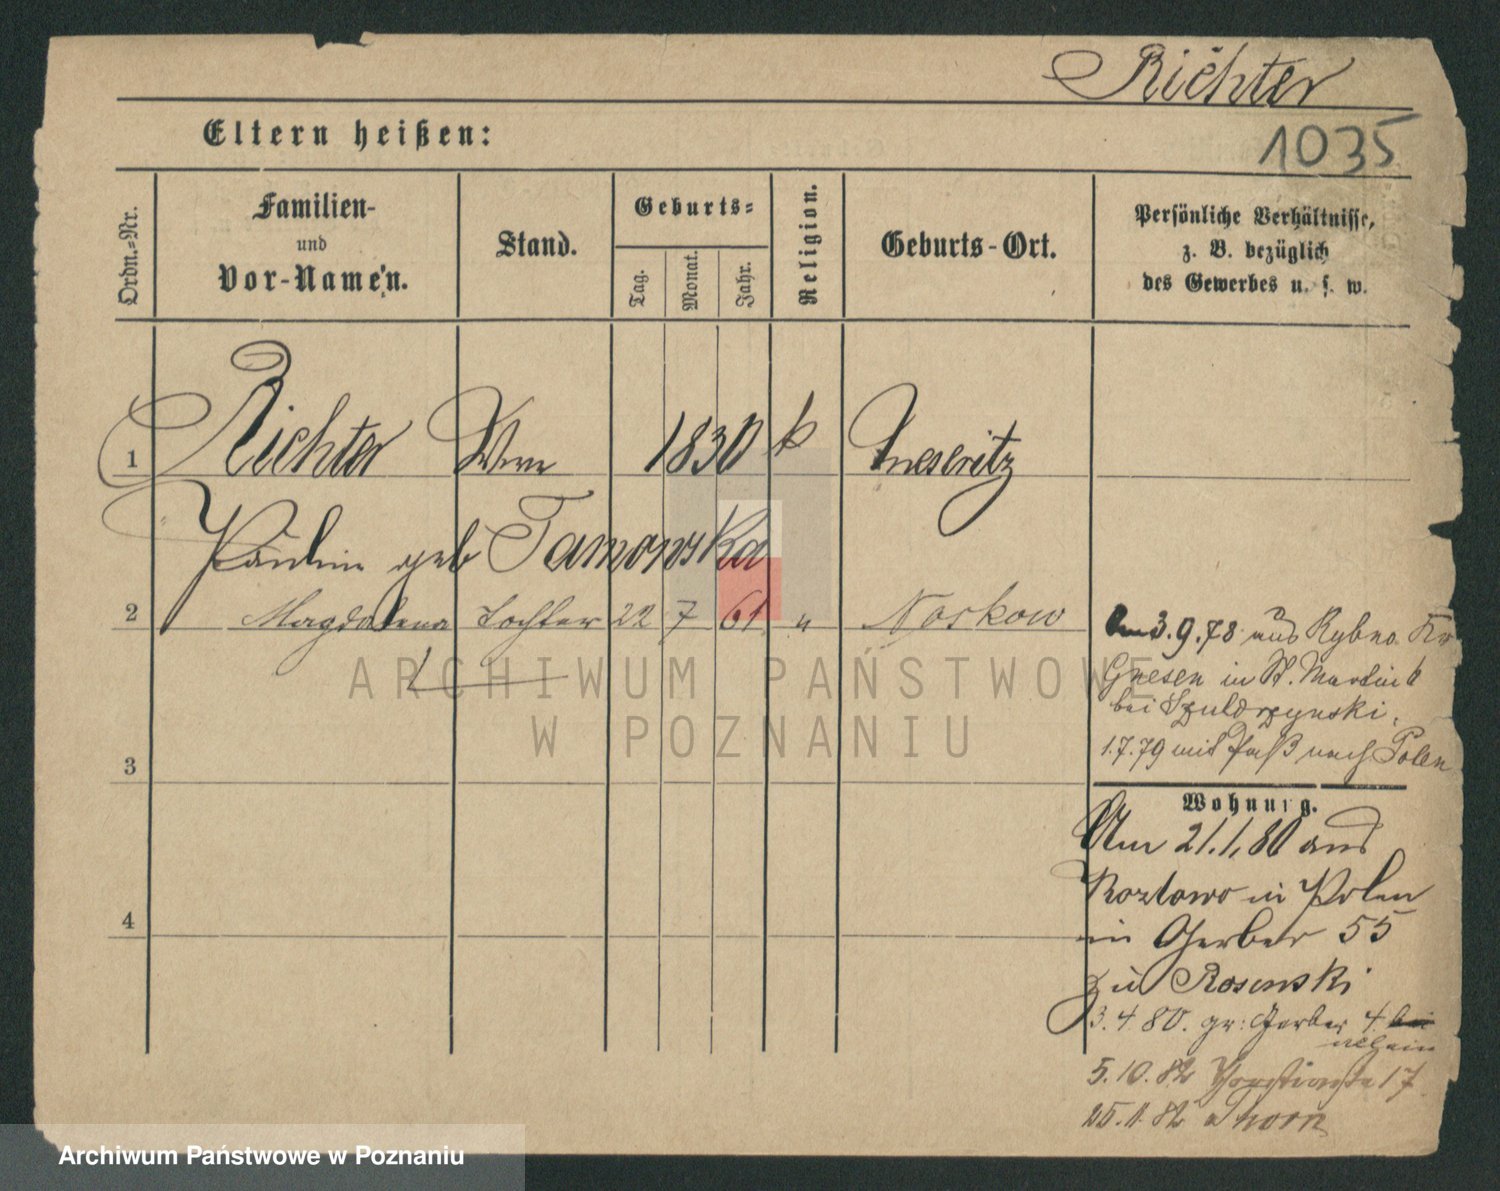 Richter
1035
Eltern heißen:
Ordn.-Nr.
Familien-
und
Vor-Namen.
Stand.
Geburts-
Tag.
Monat.
Jahr.
Religion.
Geburts-Ort.
Persönliche Verhältnisse,
z. B. bezüglich
des Gewerbes u. s. w.
1 Richter Wwe 1830 k Meseritz
geb
2 Magdalena Tochter 22 7 61 " Noskow
3
4
Am 3.9.78 aus Rybno Kr
Gnesen in St. Martin 6
bei Szuldrzynski.
1.7.79 mit Paß nach Polen
Wohnung.
Am 21.1.80 aus
Kozlowo in Polen
in Gerber 55
zu Rosenski
3.4.80. gr: Gerber 4
allein
5.10.82 17
25.11.82 Thorn
ARCHIWUM PAŃSTWOWE
W POZNANIU
Archiwum Państwowe w Poznaniu